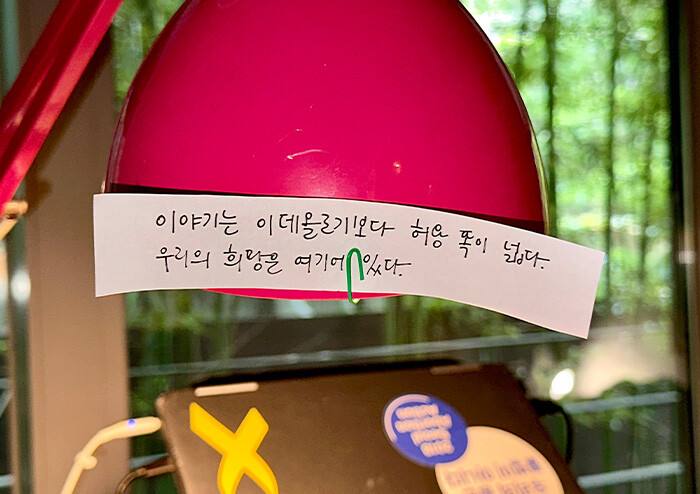 이야기는 이데올로기보다 허용 폭이 넓다.
우리의 희망은 여기에 있다.